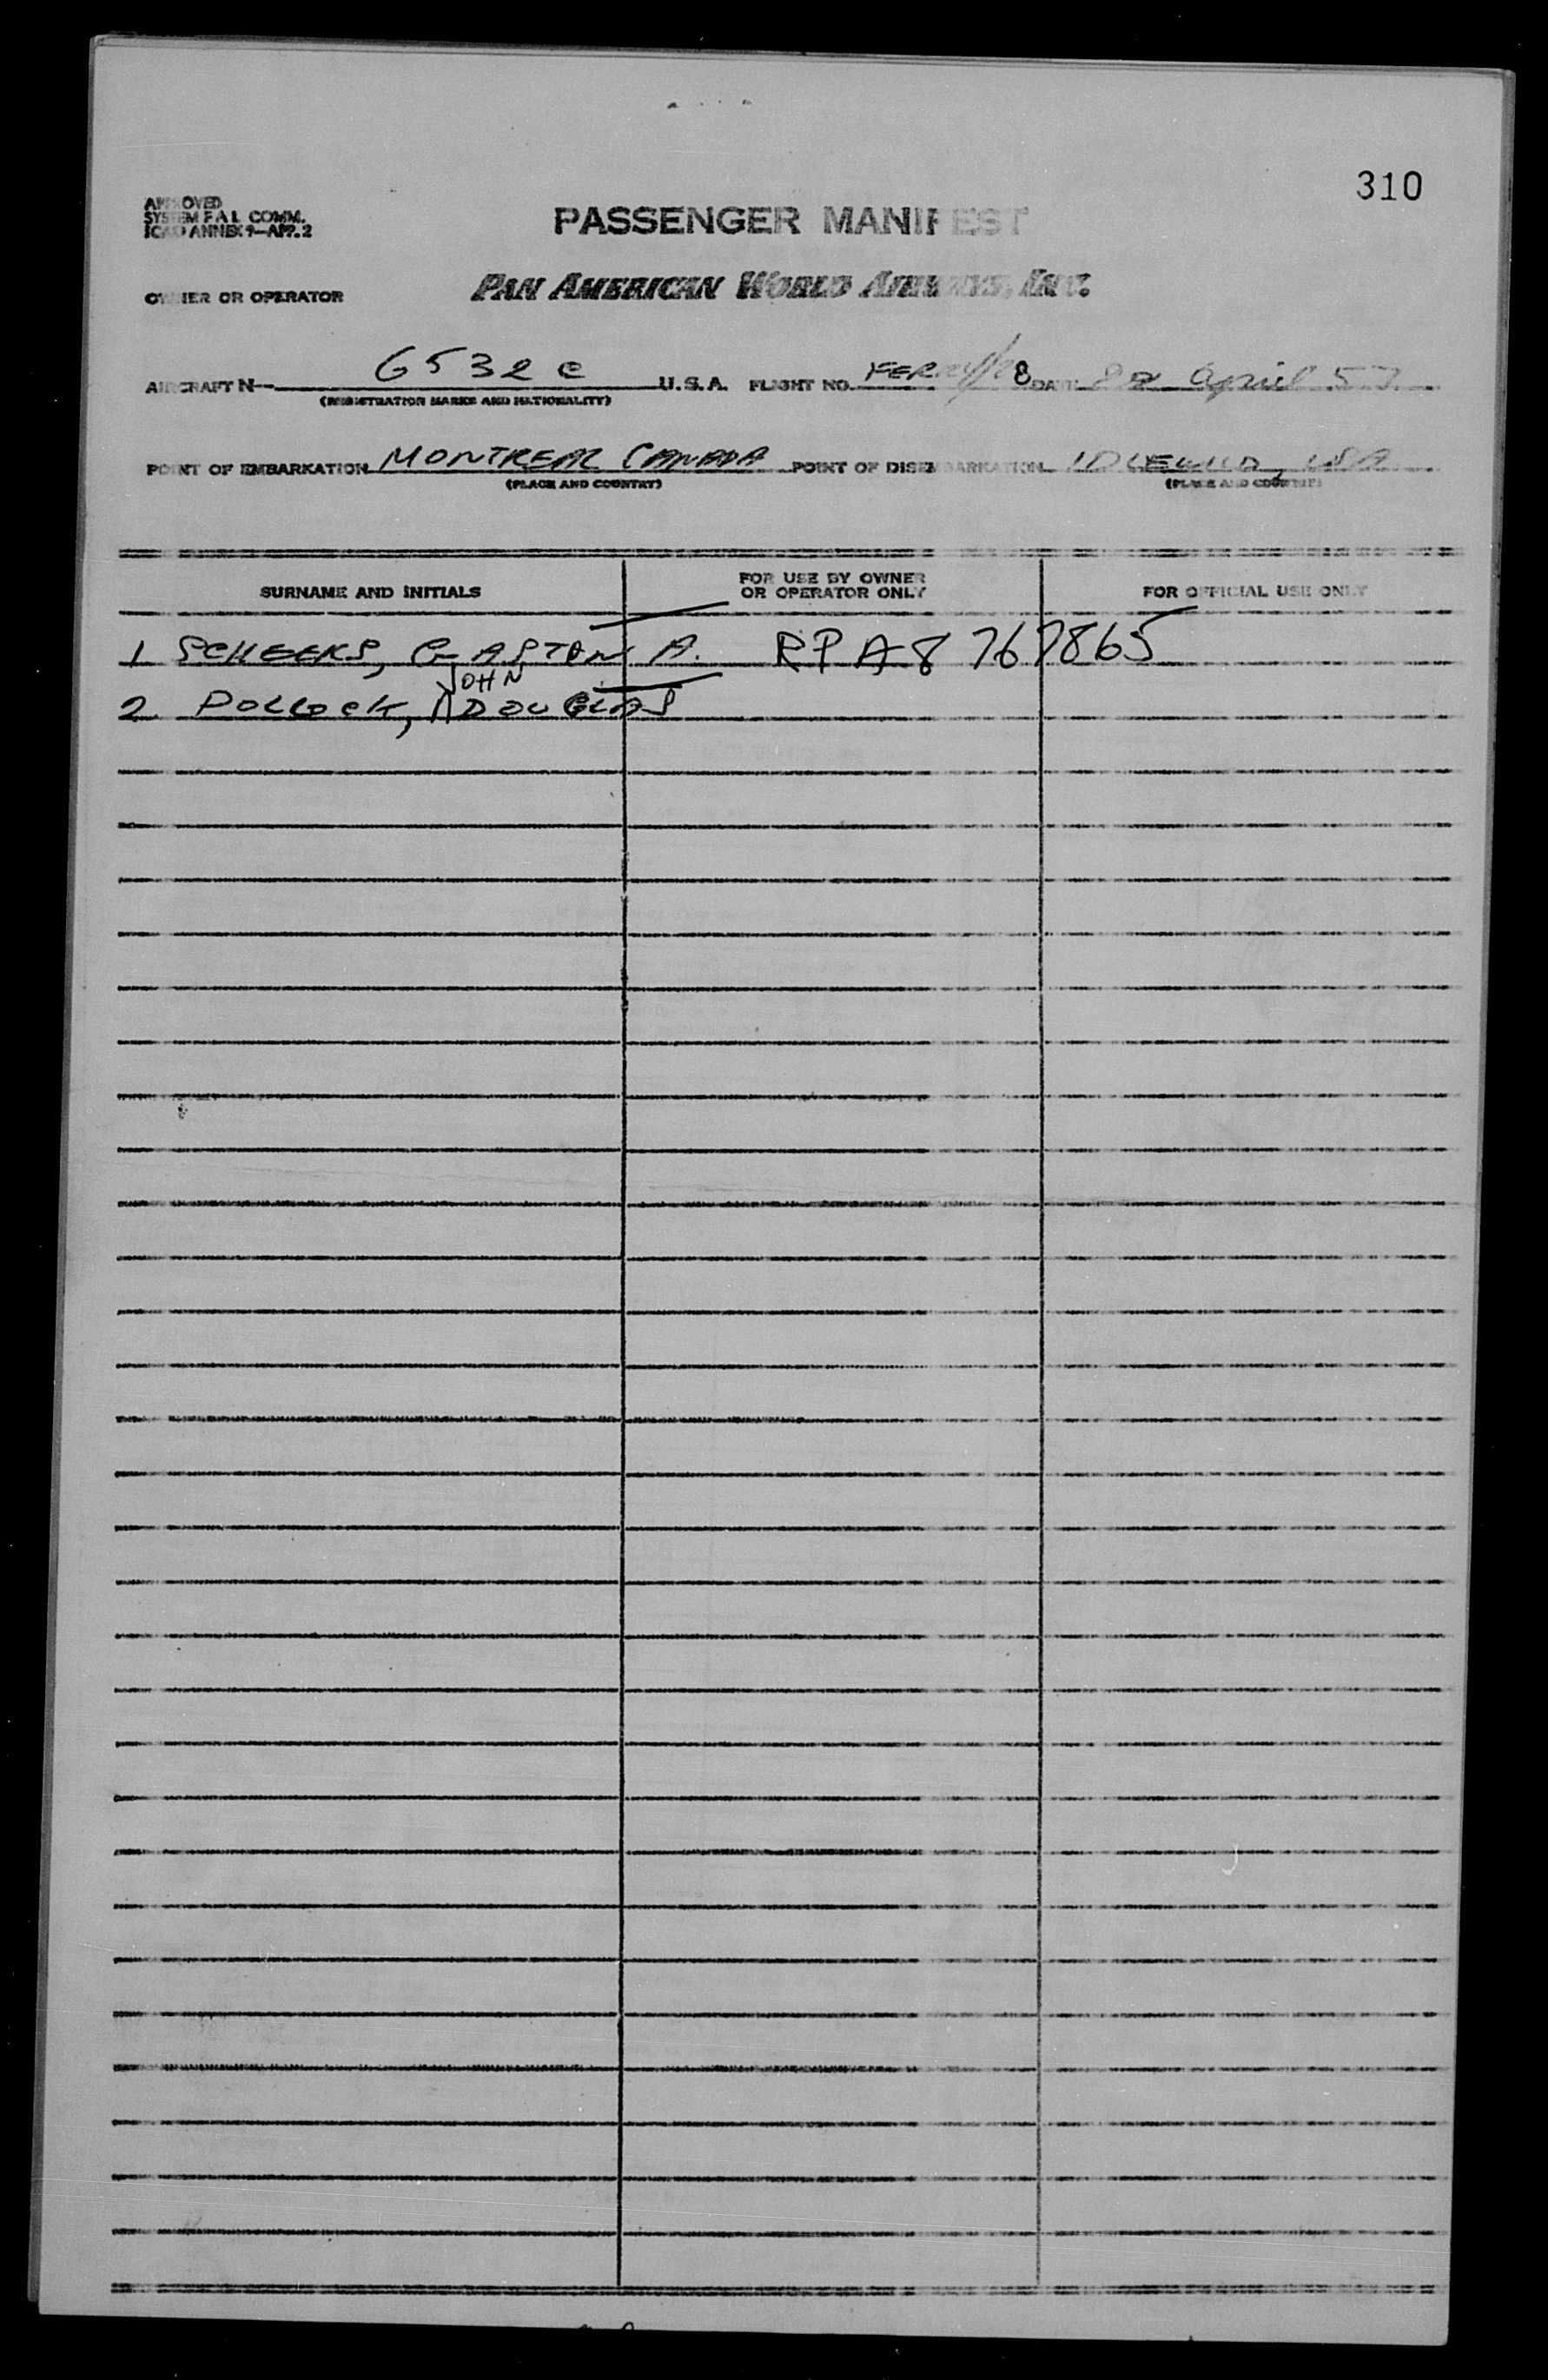 310
APPROVED
SYSTEM F A L COMM.
ICAO ANNEX 9—APP. 2
PASSENGER MANIFEST
OWNER OR OPERATOR PAN AMERICAN WORLD AIRWAYS, INC.
AIRCRAFT N— 6532C U.S.A. FLIGHT NO. DATE April 57
(REGISTRATION MARKS AND NATIONALITY)
POINT OF EMBARKATION MONTREAL CANADA POINT OF DISEMBARKATION IDLEWILD, USA
(PLACE AND COUNTRY) (PLACE AND COUNTRY)
SURNAME AND INITIALS FOR USE BY OWNER OR OPERATOR ONLY FOR OFFICIAL USE ONLY
1 SCHEEKS, GASTON A. RPA8 767865
JOHN
2. POLLOCK, DOUGLAS